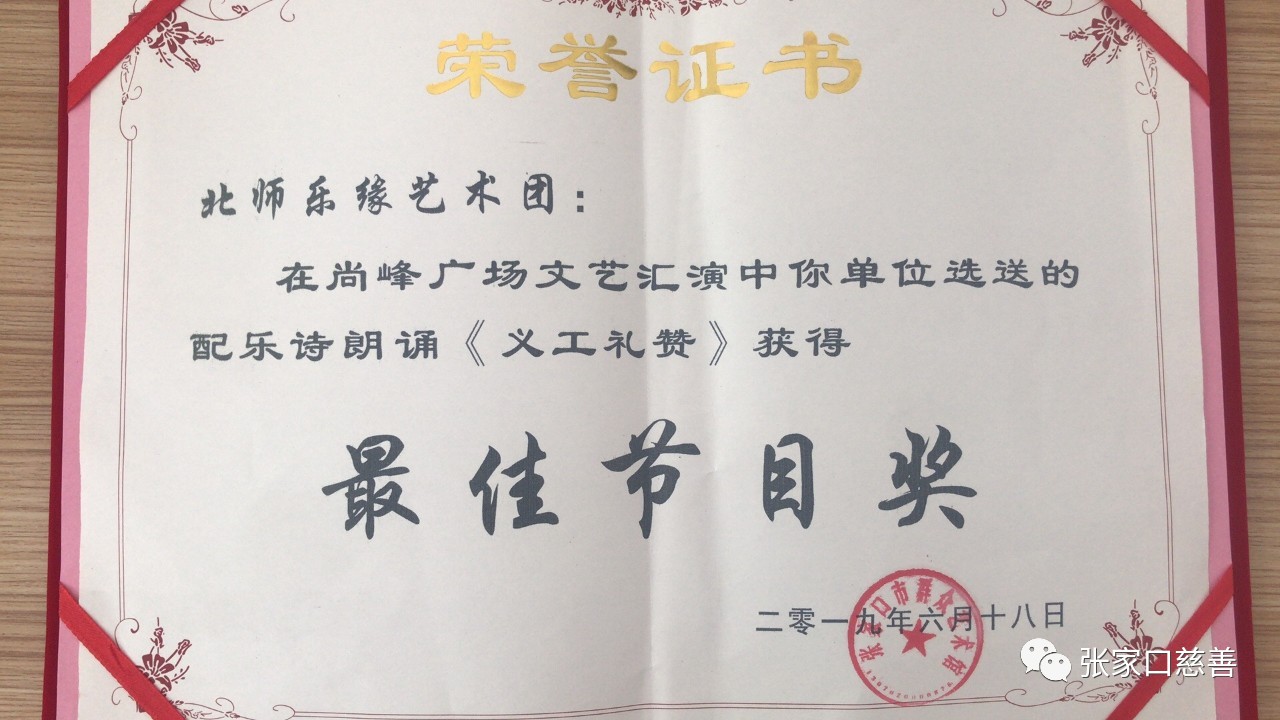 荣誉证书
北师乐缘艺术团：
在尚峰广场文艺汇演中你单位选送的
配乐诗朗诵《义工礼赞》获得
最佳节目奖
二零一九年六月十八日
张家口市群众艺术馆
张家口慈善